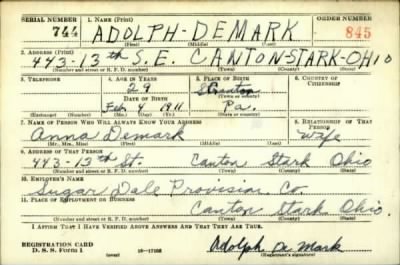 SERIAL NUMBER 1. NAME (Print) ORDER NUMBER
744 ADOLPH - DEMARK 845
(First) (Middle) (Last)
2. ADDRESS (Print)
443-13th S.E. CANTON-STARK-OHIO
(Number and street or R. F. D. number) (Town) (County) (State)
3. TELEPHONE 4. AGE IN YEARS 5. PLACE OF BIRTH 6. COUNTRY OF CITIZENSHIP
29 Scranton
(Town or county)
DATE OF BIRTH
Feb 4 1911 Pa.
(Exchange) (Number) (Mo.) (Day) (Yr.) (State or country)
7. NAME OF PERSON WHO WILL ALWAYS KNOW YOUR ADDRESS 8. RELATIONSHIP OF THAT PERSON
Anna Demark Wife
(Mr., Mrs., Miss) (First) (Middle) (Last)
9. ADDRESS OF THAT PERSON
443-13th St. Canton Stark Ohio
(Number and street or R. F. D. number) (Town) (County) (State)
10. EMPLOYER'S NAME
Sugar Dale Provision Co.
11. PLACE OF EMPLOYMENT OR BUSINESS
Canton Stark Ohio.
(Number and street or R. F. D. number) (Town) (County) (State)
I AFFIRM THAT I HAVE VERIFIED ABOVE ANSWERS AND THAT THEY ARE TRUE.
REGISTRATION CARD
D. S. S. Form 1 (over) 16-17105 Adolph De Mark
(Registrant's signature)